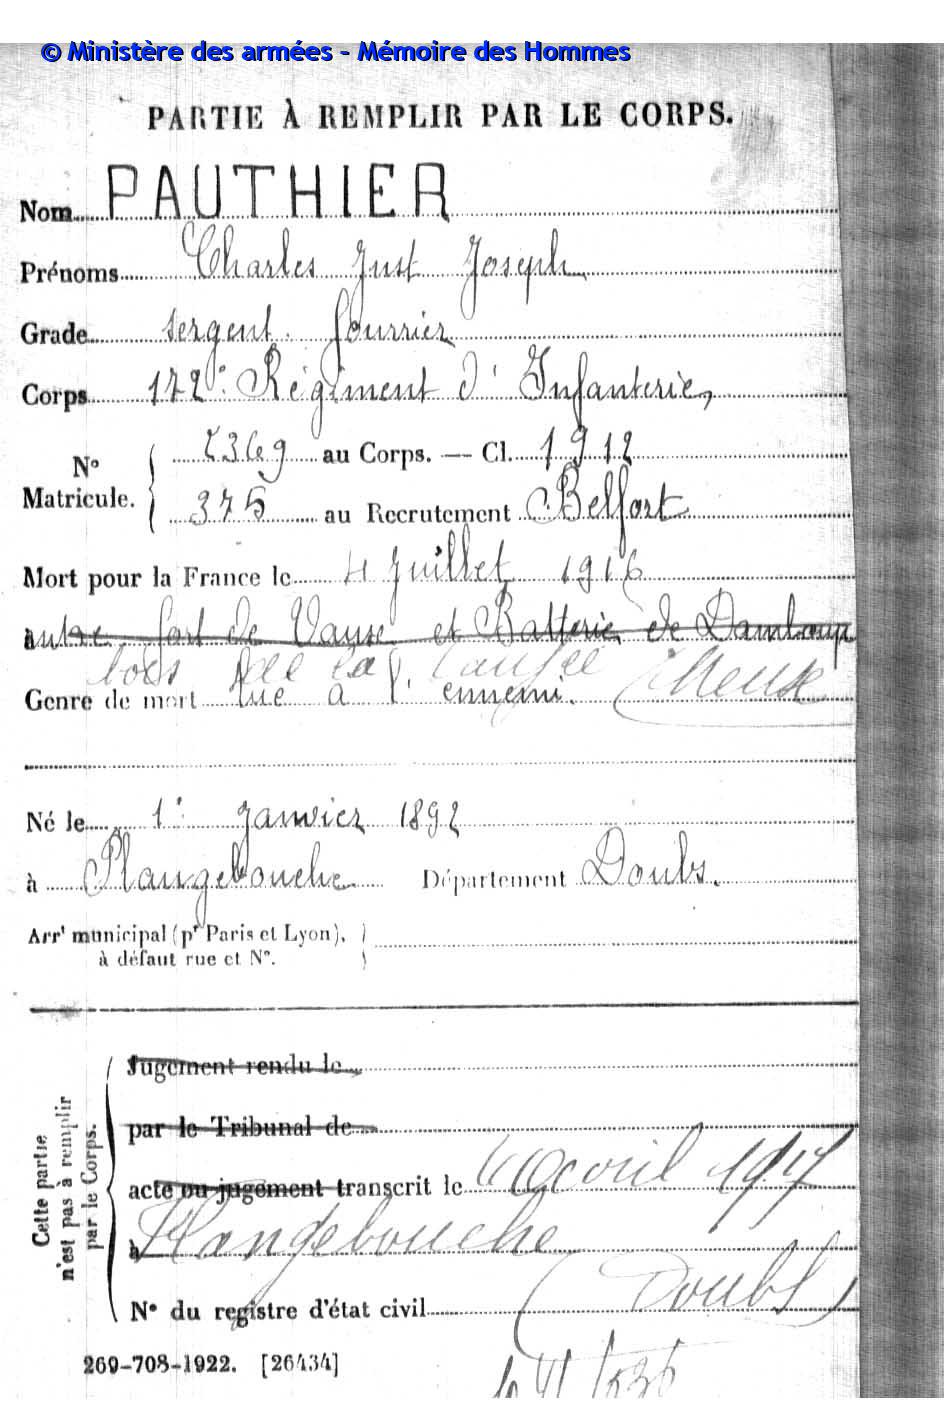 © Ministère des armées - Mémoire des Hommes
PARTIE À REMPLIR PAR LE CORPS.
Nom PAUTHIER
Prénoms Charles Just Joseph
Grade sergent fourrier
Corps 172e Régiment d'Infanterie,
N° Matricule. 2369 au Corps. — Cl. 1912
375 au Recrutement Belfort
Mort pour la France le 4 Juillet 1916
à entre fort de Vaux et Batterie de Damloup
bois de la Laufée (Meuse
Genre de mort tué à l'ennemi.
Né le 1er Janvier 1892
à Plangebouche Département Doubs.
Arrt municipal (pr Paris et Lyon),
à défaut rue et N°.
Cette partie
n'est pas à remplir
par le Corps.
Jugement rendu le
par le Tribunal de
acte ou jugement transcrit le avril 1917
à Flangebouche
(Doubs)
N° du registre d'état civil
269-708-1922. [26434]